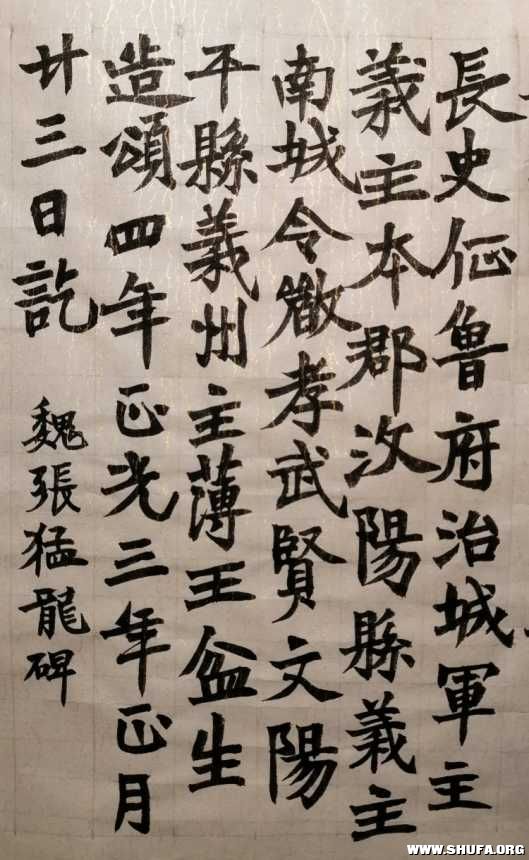 長史征魯府治城軍主
義主本郡汶陽縣義主
南城令徵孝武賢文陽
平縣義州主薄王盆生
造頌四年正光三年正月
廿三日訖
魏張猛龍碑
WWW.SHUFA.ORG